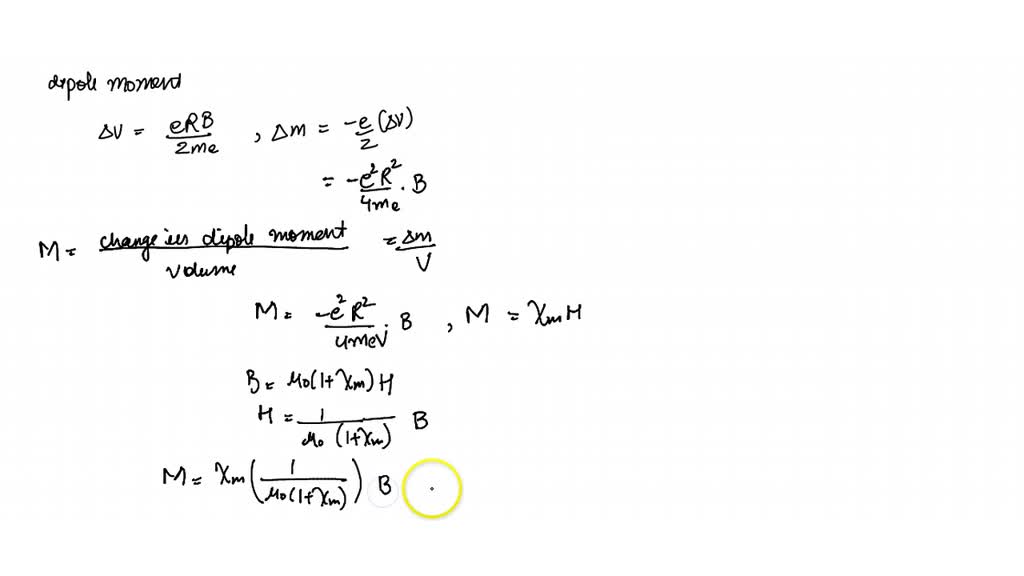 dipole moment
ΔV = eRB/2me , Δm = -e/2 (ΔV)
= -e²R²/4me . B
M = change in dipole moment/volume = Δm/V
M = -e²R²/4meV . B , M = χm H
B = μ0(1+χm) H
H = 1/μ0 (1+χm) B
M = χm (1/μ0(1+χm)) B